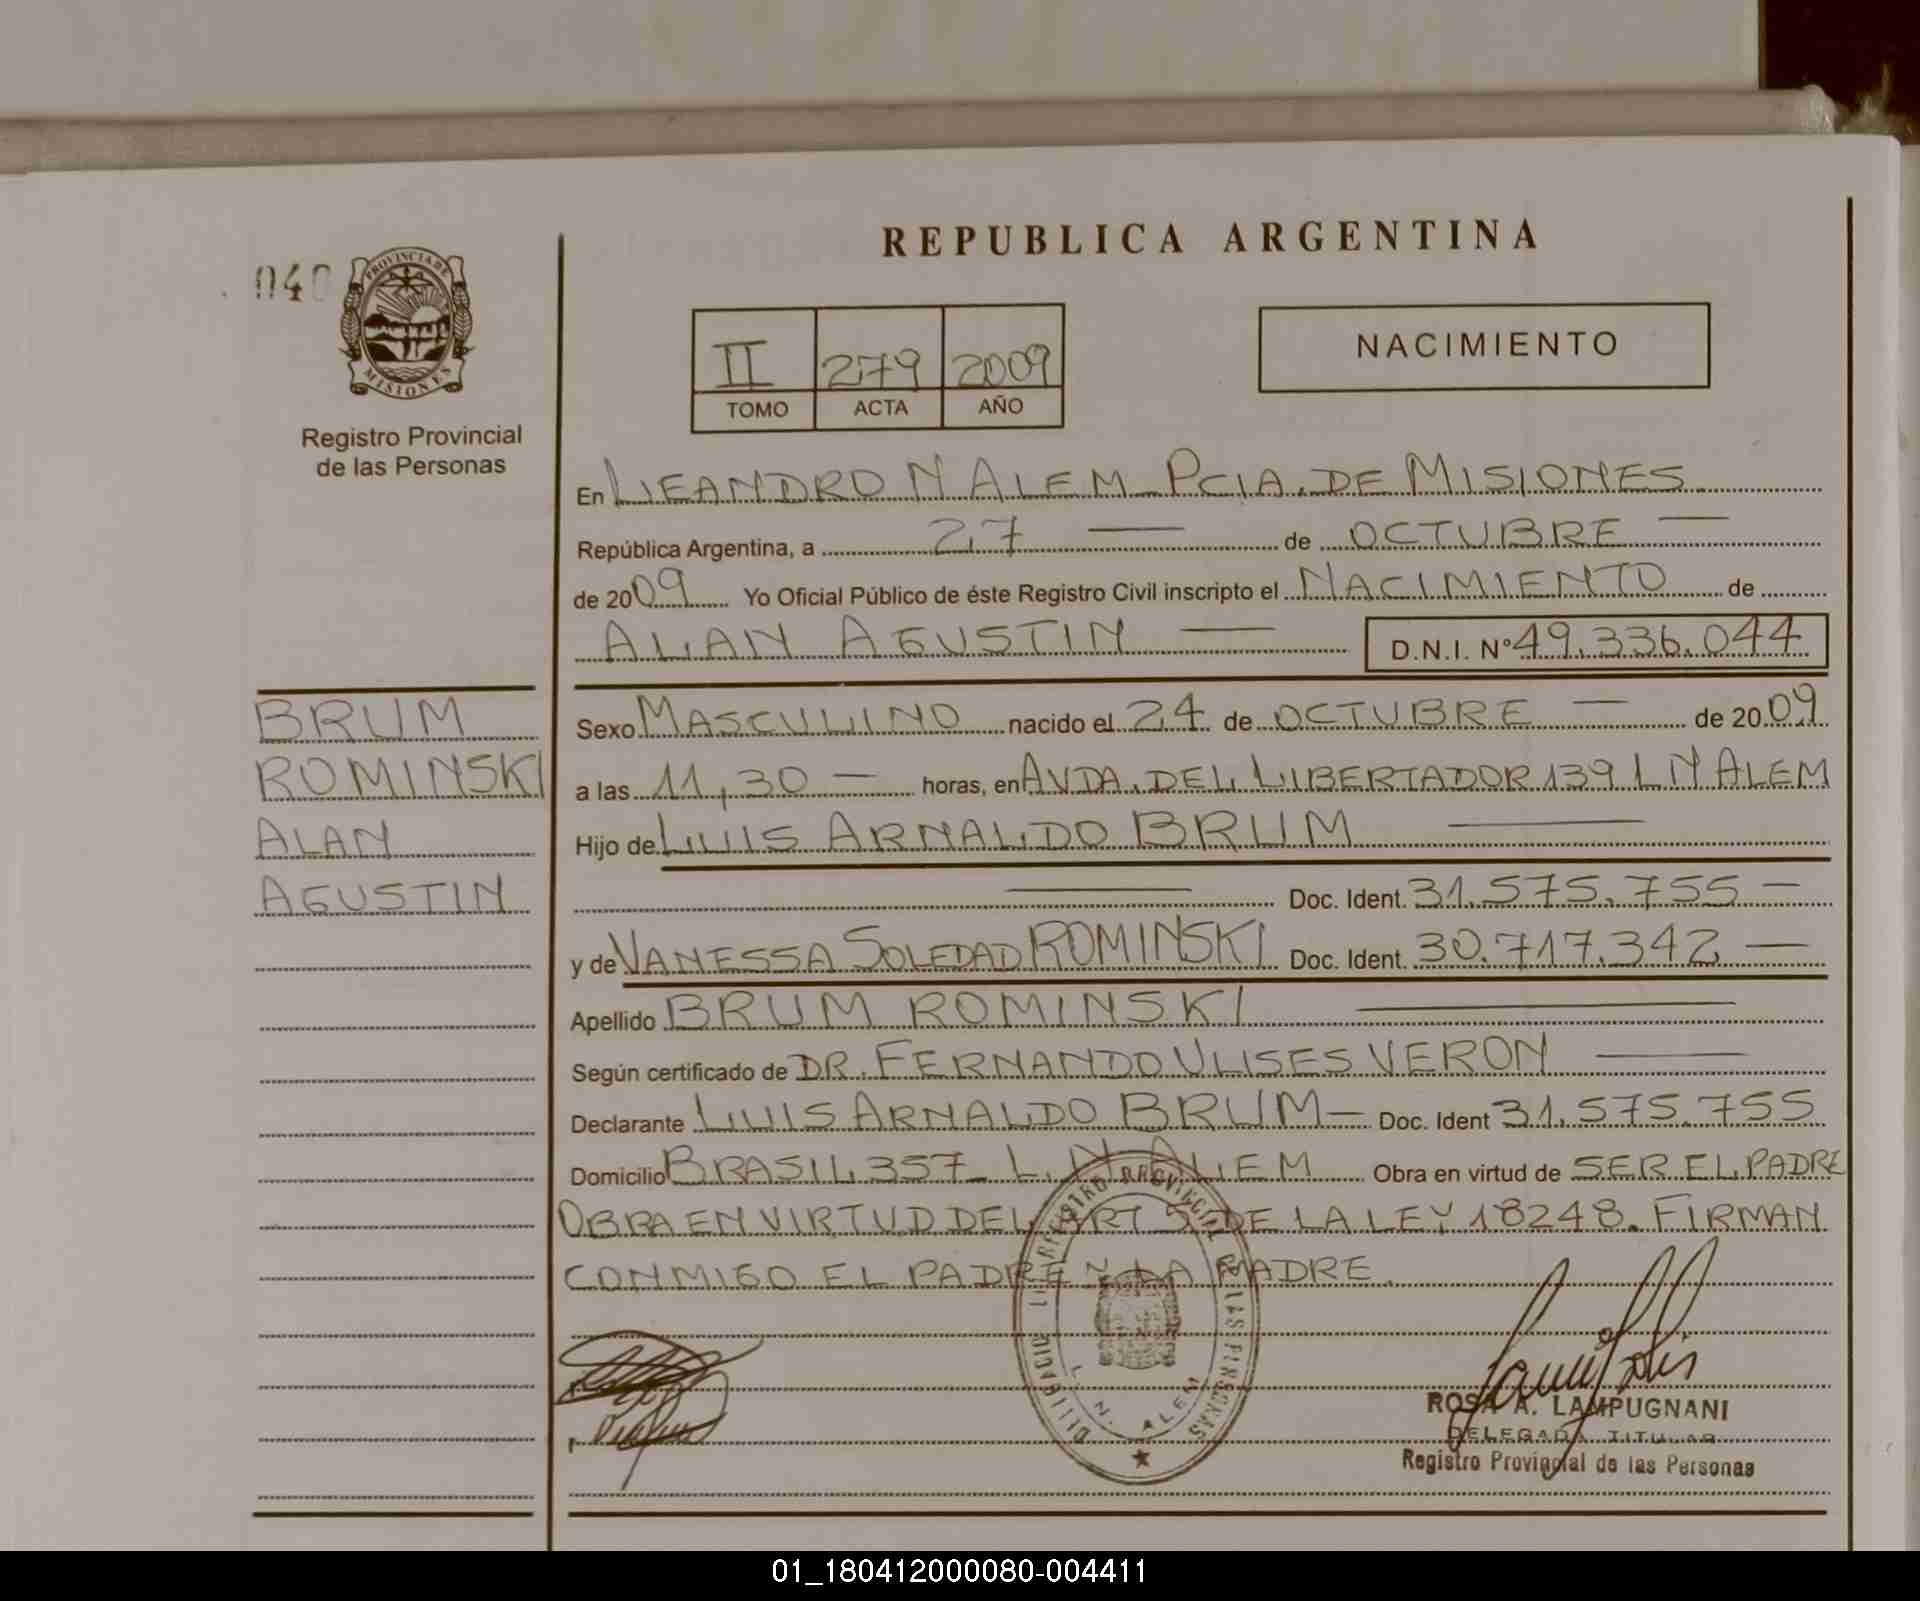 REPUBLICA ARGENTINA
040
PROVINCIA DE
MISIONES
Registro Provincial
de las Personas
II 279 2009
TOMO ACTA AÑO
NACIMIENTO
En LEANDRO N ALEM PCIA. DE MISIONES
República Argentina, a 27 — de OCTUBRE —
de 2009 Yo Oficial Público de éste Registro Civil inscripto el NACIMIENTO de
ALAN AGUSTIN — D.N.I. Nº 49.336.044
BRUM
ROMINSKI
ALAN
AGUSTIN
Sexo MASCULINO nacido el 24 de OCTUBRE — de 2009
a las 11,30 — horas, en AVDA. DEL LIBERTADOR 139 L N ALEM
Hijo de LUIS ARNALDO BRUM —
— Doc. Ident. 31.575.755 —
y de VANESSA SOLEDAD ROMINSKI Doc. Ident. 30.717.342 —
Apellido BRUM ROMINSKI —
Según certificado de DR. FERNANDO ULISES VERON —
Declarante LUIS ARNALDO BRUM — Doc. Ident 31.575.755
Domicilio BRASIL 357 _ L. N ALEM Obra en virtud de SER EL PADRE
OBRA EN VIRTUD DEL ART 5 DE LA LEY 18248. FIRMAN
CONMIGO EL PADRE Y LA MADRE.
REGISTRO PROVINCIAL DE LAS PERSONAS
L. N. ALEM
ROSA A. LAMPUGNANI
DELEGADA TITULAR
Registro Provincial de las Personas
01_180412000080-004411